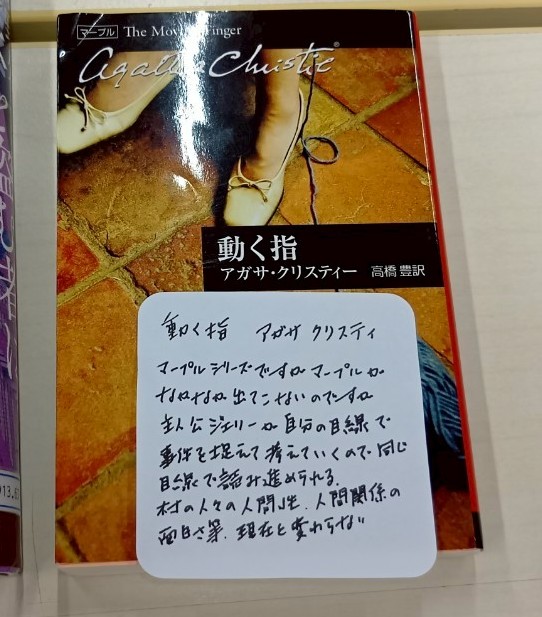 マープル The Moving Finger
Agatha Christie
動く指
アガサ・クリスティー 高橋 豊訳
動く指 アガサ クリスティ
マープルシリーズですが マープルが
なかなか出てこないのですが
主人公ジェリーが自分の目線で
事件を捉えて考えていくので同じ
目線で読み進められる.
村の人々の人間性. 人間関係の
面白さ等. 現在と変わらない
913.6